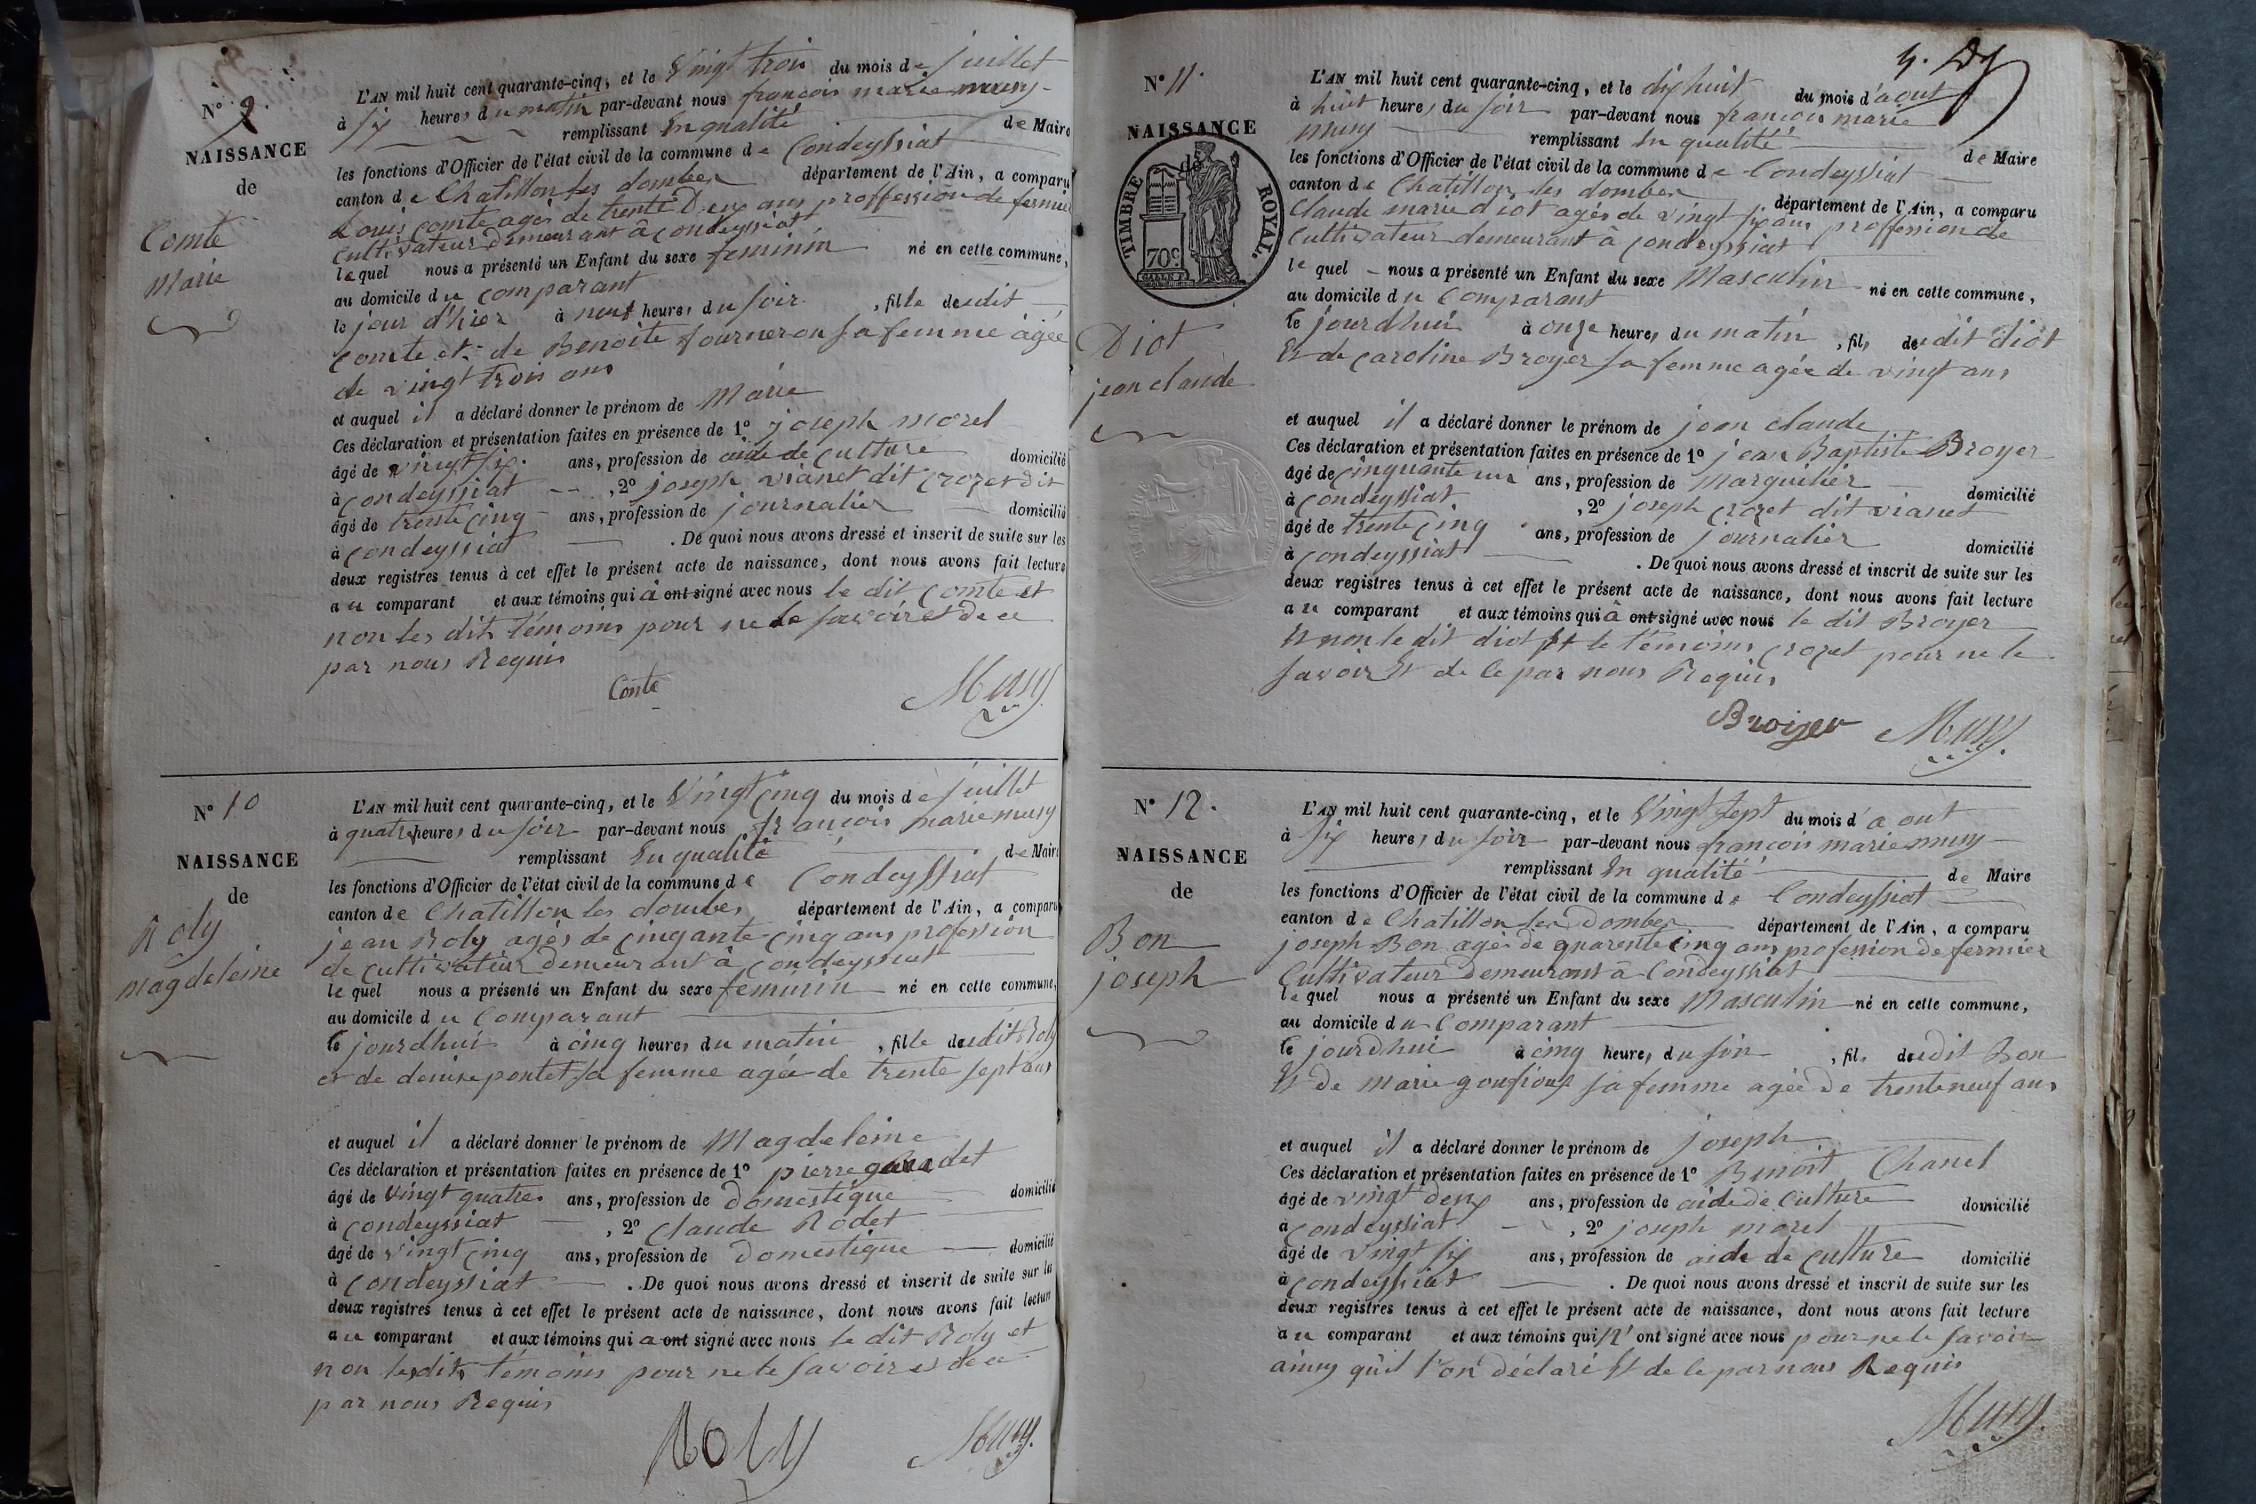 N° 9
NAISSANCE
de
Comte
Marie
L'AN mil huit cent quarante-cinq, et le Vingt trois du mois de juillet
à six heures du matin par-devant nous francois marie musy
remplissant En qualité de Maire
les fonctions d'Officier de l'état civil de la commune de Condeyssiat
canton de Chatillon les dombes département de l'Ain, a comparu
Louis comte agés de trente Deux ans proffession de fermier
cultivateur demeurant à condeyssiat
lequel nous a présenté un Enfant du sexe feminin né en cette commune,
au domicile du comparant
le jour d'hier à neuf heures du soir, fille dudit
comte et de Benoite fourneron sa femme agée
de vingt trois ans
et auquel il a déclaré donner le prénom de Marie
Ces déclaration et présentation faites en présence de 1° joseph morel
âgé de vingt six ans, profession de aide de culture domicilié
à condeyssiat, 2° joseph vianet dit crozet dit
âgé de trente cinq ans, profession de journalier domicilié
à condeyssiat. De quoi nous avons dressé et inscrit de suite sur les
deux registres tenus à cet effet le présent acte de naissance, dont nous avons fait lecture
au comparant et aux témoins qui à ont signé avec nous le dit comte et
non les dits témoins pour ne le savoir et de ce
par nous Requis
Conte Musy
N° 10
NAISSANCE
de
Roly
magdeleine
L'AN mil huit cent quarante-cinq, et le Vingt cinq du mois de juillet
à quatre heures du soir par-devant nous francois marie musy
remplissant En qualité de Maire
les fonctions d'Officier de l'état civil de la commune de Condeyssiat
canton de Chatillon les dombes département de l'Ain, a comparu
jean Roly agés de cinqante cinq ans profession
de cultivateur demeurant à condeyssiat
lequel nous a présenté un Enfant du sexe feminin né en cette commune,
au domicile du Comparant
le jourdhui à cinq heures du matin, fille dudit Roly
et de denise pontet sa femme agée de trente sept ans
et auquel il a déclaré donner le prénom de Magdeleine
Ces déclaration et présentation faites en présence de 1° pierre
âgé de vingt quatre ans, profession de domestique domicilié
à condeyssiat, 2° claude Rodet
âgé de vingt cinq ans, profession de Domestique domicilié
à condeyssiat. De quoi nous avons dressé et inscrit de suite sur les
deux registres tenus à cet effet le présent acte de naissance, dont nous avons fait lecture
au comparant et aux témoins qui a ont signé avec nous le dit Roly et
non lesdits témoins pour ne le savoir et de ce
par nous Requis
Roly Musy
N° 11.
NAISSANCE
de
TIMBRE ROYAL.
70c
Diot
jean claude
L'AN mil huit cent quarante-cinq, et le dixhuit du mois d'aout
à huit heures du soir par-devant nous francois marie
musy remplissant En qualité de Maire
les fonctions d'Officier de l'état civil de la commune de Condeyssiat
canton de Chatillon les dombes département de l'Ain, a comparu
Claude marie diot agés de vingt six ans proffession de
Cultivateur demeurant à condeyssiat
lequel nous a présenté un Enfant du sexe Masculin né en cette commune,
au domicile du Comparant
le jourdhui à onze heures du matin, fils dudit diot
Et de caroline Broyer sa femme agée de vingt ans
et auquel il a déclaré donner le prénom de jean claude
Ces déclaration et présentation faites en présence de 1° jean Baptiste Broyer
âgé de cinquante un ans, profession de Marguilier domicilié
à condeyssiat, 2° joseph crozet dit vianet
âgé de trente cinq ans, profession de journalier domicilié
à condeyssiat. De quoi nous avons dressé et inscrit de suite sur les
deux registres tenus à cet effet le présent acte de naissance, dont nous avons fait lecture
au comparant et aux témoins qui à ont signé avec nous le dit Broyer
Et non le dit diot Et le témoins crozet pour ne le
savoir Et de ce par nous Requis
Broiyer Musy
N° 12.
NAISSANCE
de
Bon
joseph
L'AN mil huit cent quarante-cinq, et le Vingt sept du mois d'aout
à six heures du soir par-devant nous francois marie musy
remplissant En qualité de Maire
les fonctions d'Officier de l'état civil de la commune de Condeyssiat
canton de Chatillon les Dombes département de l'Ain, a comparu
joseph Bon agés de quarente cinq ans profession de fermier
Cultivateur demeurant à Condeyssiat
lequel nous a présenté un Enfant du sexe Masculin né en cette commune,
au domicile du Comparant
le jourdhui à cinq heures du soir, fils dudit Bon
Et De marie sa femme agée De trente neuf ans
et auquel il a déclaré donner le prénom de joseph
Ces déclaration et présentation faites en présence de 1° Benoit Chanel
âgé de vingt deux ans, profession de aide de culture domicilié
à condeyssiat, 2° joseph morel
âgé de vingt six ans, profession de aide de culture domicilié
à condeyssiat. De quoi nous avons dressé et inscrit de suite sur les
deux registres tenus à cet effet le présent acte de naissance, dont nous avons fait lecture
au comparant et aux témoins qui n' ont signé avec nous pour ne le savoir
ainsy qu'il l'on déclaré Et de ce par nous Requis
Musy